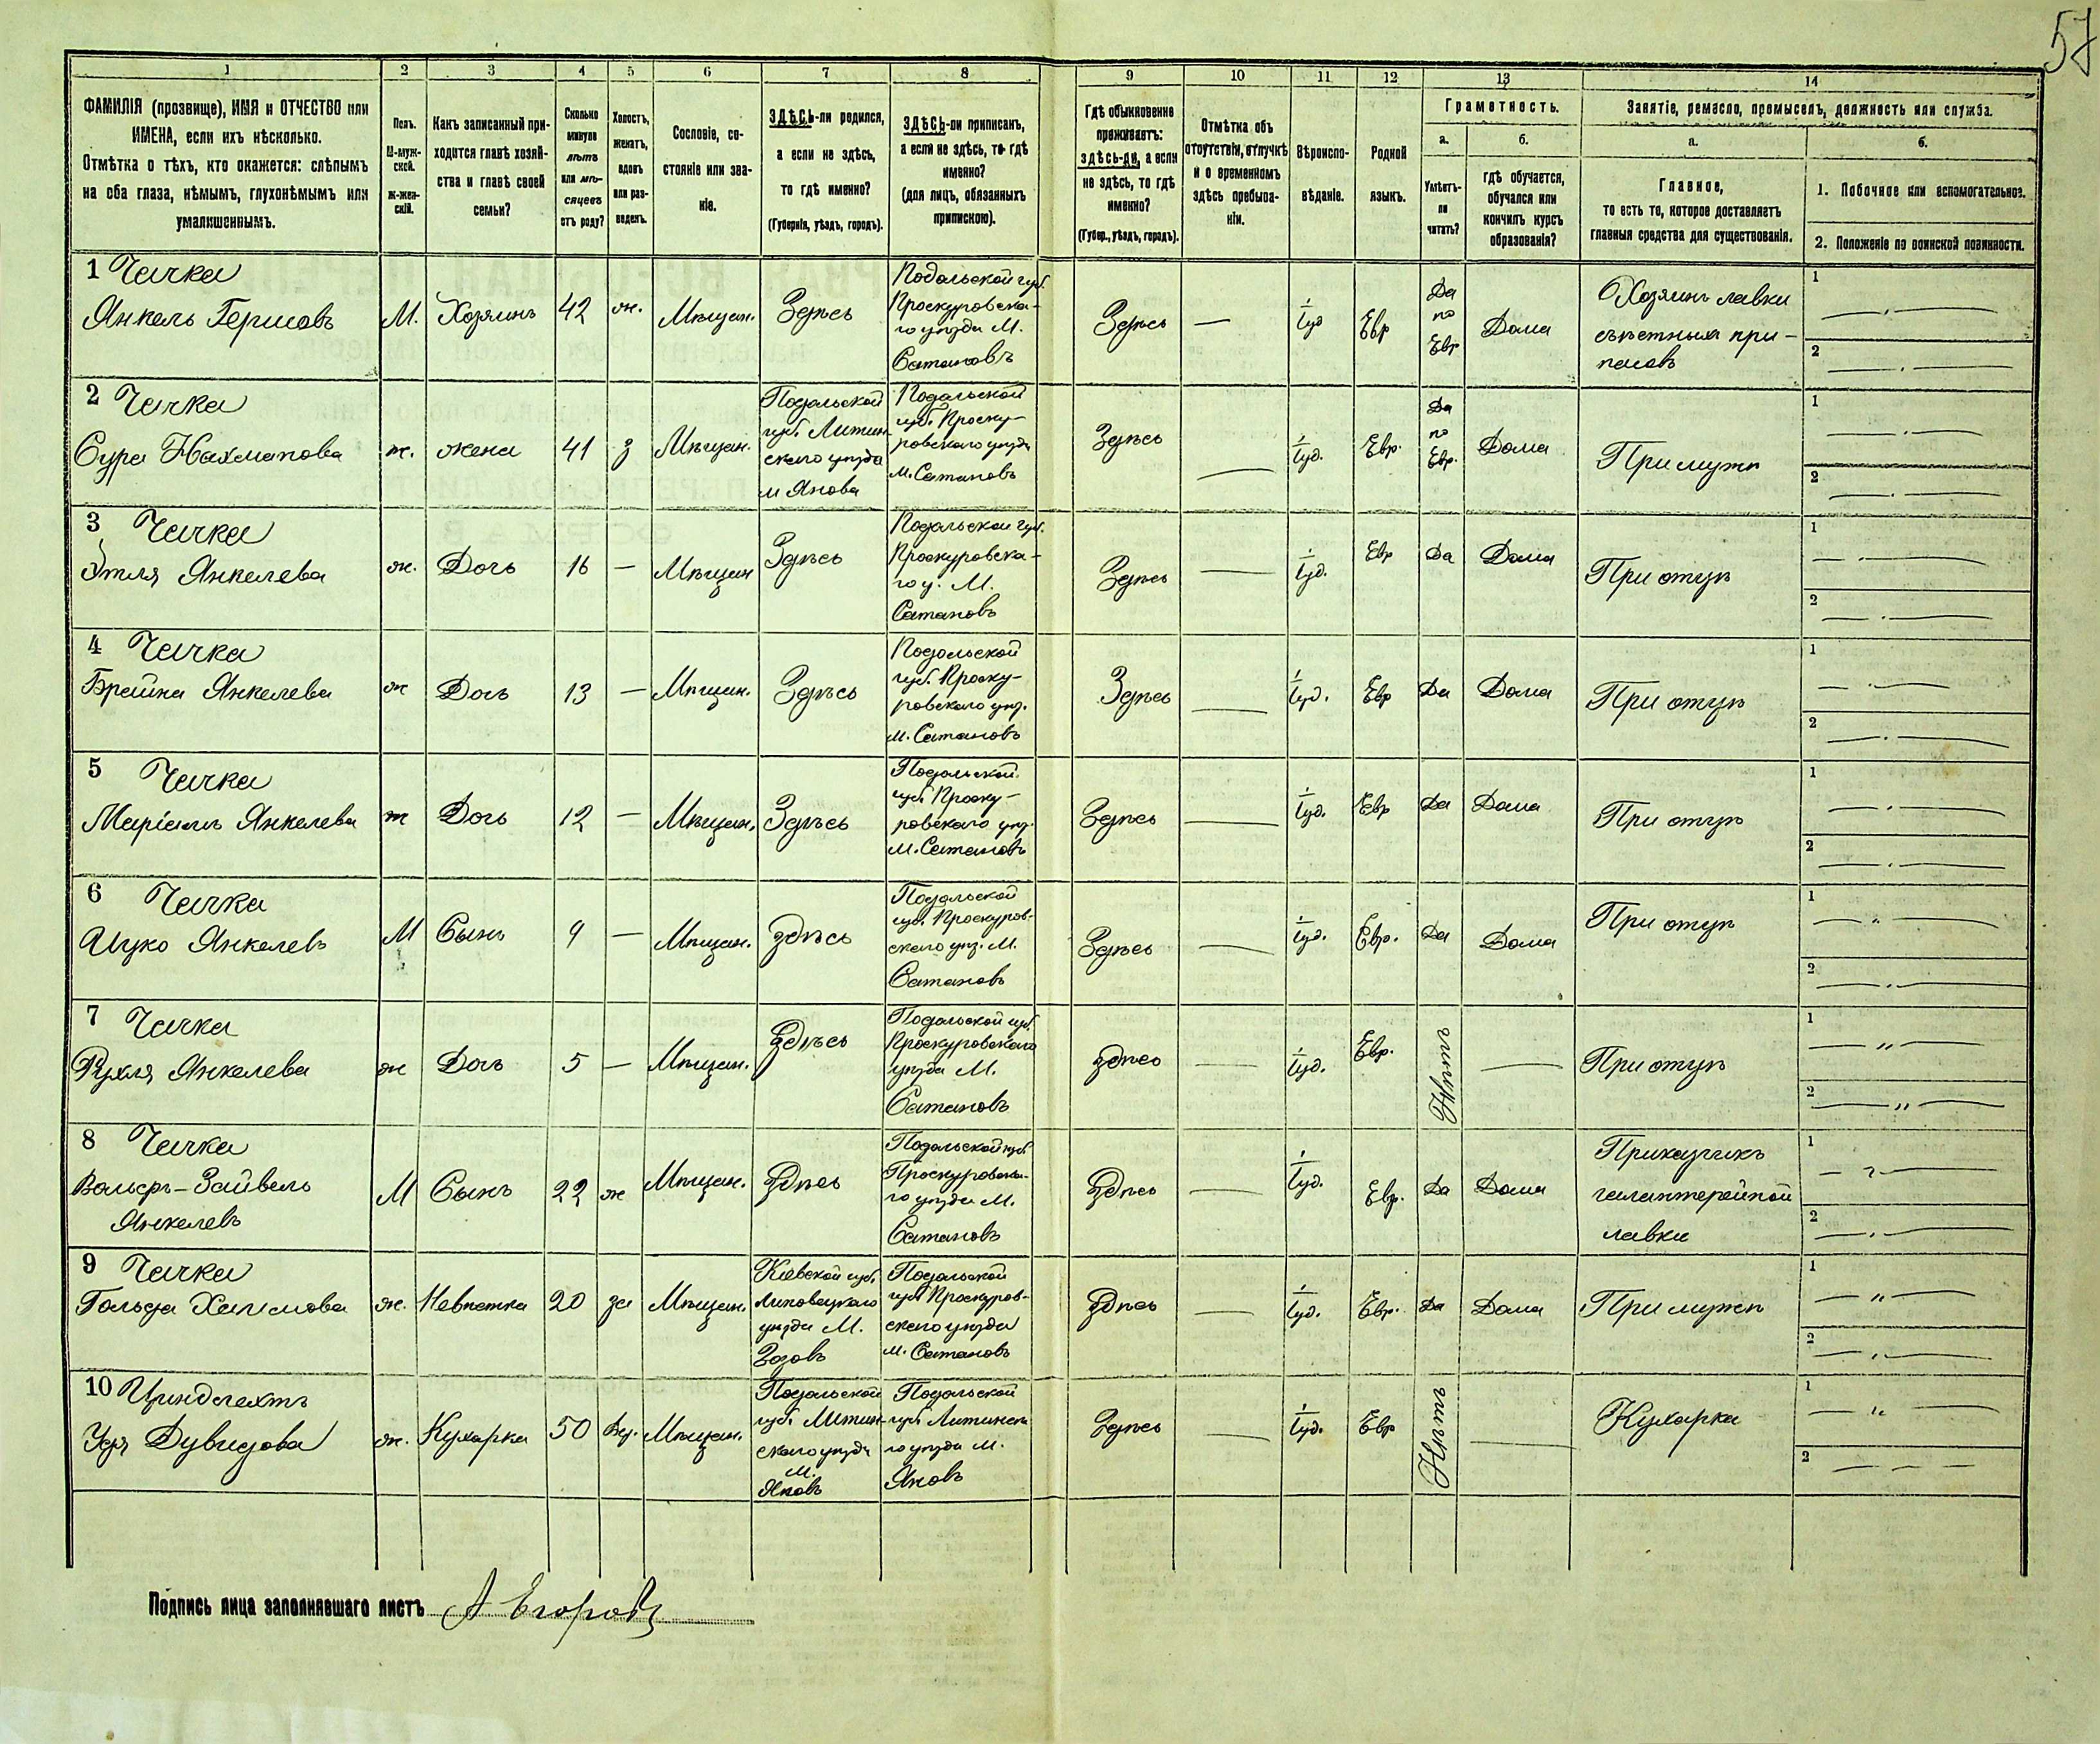 57
1 2 3 4 5 6 7 8 9 10 11 12 13 14
ФАМИЛІЯ (прозвище), ИМЯ и ОТЧЕСТВО или
ИМЕНА, если ихъ нѣсколько.
Отмѣтка о тѣхъ, кто окажется: слѣпымъ
на оба глаза, нѣмымъ, глухонѣмымъ или
умалишеннымъ.
Полъ.
М-муж-
ской.
Ж-жен-
скій.
Какъ записанный при-
ходится главѣ хозяй-
ства и главѣ своей
семьи?
Сколько
минуло
лѣтъ
или мѣ-
сяцевъ
отъ роду?
Холостъ,
женатъ,
вдовъ
или раз-
веденъ.
Сословіе, со-
стояніе или зва-
ніе.
ЗДѢСЬ-ли родился,
а если не здѣсь,
то гдѣ именно?
(Губернія, уѣздъ, городъ).
ЗДѢСЬ-ли приписанъ,
а если не здѣсь, то гдѣ
именно?
(для лицъ, обязанныхъ
припискою).
Гдѣ обыкновенно
проживаетъ:
здѣсь-ли, а если
не здѣсь, то гдѣ
именно?
(Губер., уѣздъ, городъ).
Отмѣтка объ
отсутствіи, отлучкѣ
и о временномъ
здѣсь пребыва-
ніи.
Вѣроиспо-
вѣданіе.
Родной
языкъ.
Грамотность.
а.
Умѣетъ-
ли
читать?
б.
гдѣ обучается,
обучался или
кончилъ курсъ
образованія?
Занятіе, ремесло, промыселъ, должность или служба.
а.
Главное,
то есть то, которое доставляетъ
главныя средства для существованія.
б.
1. Побочное или вспомогательное.
2. Положеніе по воинской повинности.
1 Чачка
Янкель Гершовъ
М.
Хозяинъ
42
ж.
Мѣщан.
Здѣсь
Подольской губ.
Проскуровска-
го уѣзда М.
Сатановъ
Здѣсь
—
Іуд
Евр
Да
по
Евр
Дома
Хозяинъ лавки
съѣстныхъ при-
пасовъ
1
2
2 Чачка
Сура Нахманова
ж.
жена
41
з
Мѣщан.
Подольской
губ. Литин-
скаго уѣзда
м Янова
Подольской
губ. Проску-
ровскаго уѣзда
м. Сатановъ
Здѣсь
—
Іуд.
Евр.
Да
по
Евр.
Дома
При мужѣ
1
2
3 Чачка
Этля Янкелева
ж.
Дочь
16
—
Мѣщан
Здѣсь
Подольской губ.
Проскуровска-
го у. М.
Сатановъ
Здѣсь
—
Іуд.
Евр
Да
Дома
При отцѣ
1
2
4 Чачка
Брейна Янкелева
ж
Дочь
13
—
Мѣщан.
Здѣсь
Подольской
губ. Проску-
ровскаго уѣз.
м. Сатановъ
Здѣсь
—
Іуд.
Евр
Да
Дома
При отцѣ
1
2
5 Чачка
Маріамъ Янкелева
ж
Дочь
12
—
Мѣщан.
Здѣсь
Подольской
губ. Проску-
ровскаго уѣз.
м. Сатановъ
Здѣсь
—
Іуд.
Евр
Да
Дома
При отцѣ
1
2
6 Чачка
Ицко Янкелевъ
М
Сынъ
9
—
Мѣщан.
здѣсь
Подольской
губ. Проскуров-
скаго уѣз. М.
Сатановъ
Здѣсь
—
Іуд.
Евр.
Да
Дома
При отцѣ
1
2
7 Чачка
Рухля Янкелева
ж
Дочь
5
—
Мѣщан.
здѣсь
Подольской губ.
Проскуровскаго
уѣзда М.
Сатановъ
здѣсь
—
Іуд.
Евр.
Нѣтъ
—
При отцѣ
1
2
8 Чачка
Вольфъ-Зайвель
Янкелевъ
М
Сынъ
22
ж
Мѣщан.
Здѣсь
Подольской губ.
Проскуровска-
го уѣзда М.
Сатановъ
Здѣсь
—
Іуд.
Евр.
Да
Дома
Приказчикъ
галантерейной
лавки
1
2
9 Чачка
Гольда Хаимова
ж.
Невѣстка
20
за
Мѣщан.
Кіевской губ.
Липовецкаго
уѣзда М.
Зозовъ
Подольской
губ. Проскуров-
скаго уѣзда
м. Сатановъ
Здѣсь
—
Іуд.
Евр.
Да
Дома
При мужѣ
1
2
10
Дувидова
ж.
Кухарка
50
Вд.
Мѣщан.
Подольской
губ. Литин-
скаго уѣзда
м.
Яновъ
Подольской
губ. Литинска
го уѣзда м.
Яновъ
Здѣсь
—
Іуд.
Евр
Нѣтъ
—
Кухарка
1
2
Подпись лица заполнявшаго листъ А Егоровъ